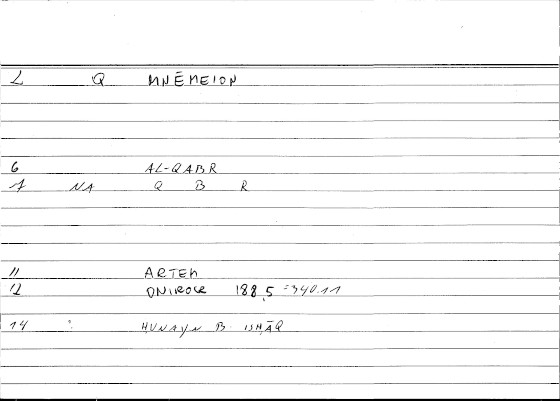 2 Q MNĒMEION
6 AL-QABR
7 NA Q B R
11 ARTEM
12 ONIROCR 188,5 =340.11
14 HUNAYN B. ISḤĀQ